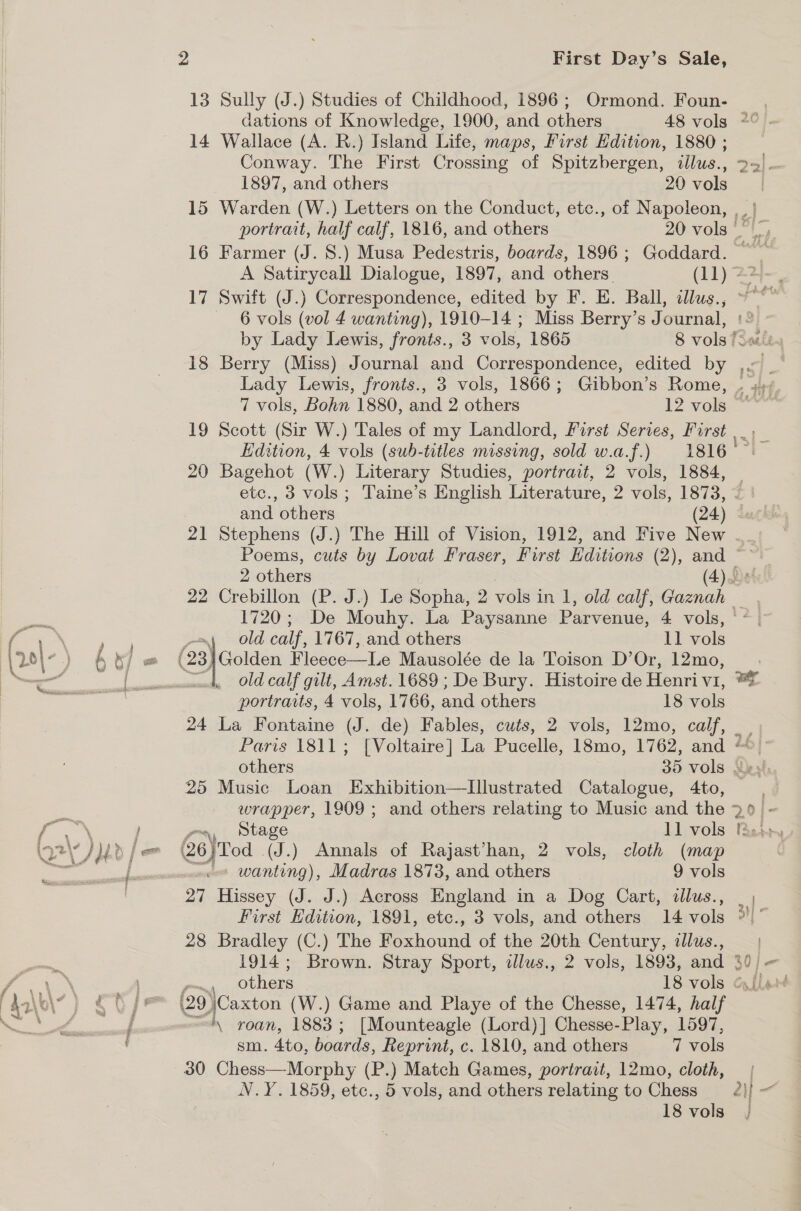 2 First Day's Sale,
13 Sully (J.) Studies of Childhood, 1896; Ormond. Foun-
dations of Knowledge, 1900, and others 48 vols
14 Wallace (A. R.) Island Life, maps, First Edition, 1880;
Conway. The First Crossing of Spitzbergen, illus.,
1897, and others 20 vols
15 Warden (W.) Letters on the Conduct, etc., of Napoleon,
portrait, half calf, 1816, and others 20 vols
16 Farmer (J. S.) Musa Pedestris, boards, 1896; Goddard.
A Satirycall Dialogue, 1897, and others (11)
17 Swift (J.) Correspondence, edited by F. E. Ball, illus.,
6 vols (vol 4 wanting), 1910-14; Miss Berry's Journal,
by Lady Lewis, fronts., 3 vols, 1865 8 vols
18 Berry (Miss) Journal and Correspondence, edited by
Lady Lewis, fronts., 3 vols, 1866; Gibbon's Rome,
7 vols, Bohn 1880, and 2 others 12 vols
19 Scott (Sir W.) Tales of my Landlord, First Series, First
Edition, 4 vols (sub-titles missing, sold w.a.f.) 1816
20 Bagehot (W.) Literary Studies, portrait, 2 vols, 1884,
etc., 3 vols; Taine's English Literature, 2 vols, 1873,
and others (24)
21 Stephens (J.) The Hill of Vision, 1912, and Five New
Poems, cuts by Lovat Fraser, First Editions (2), and
2 others (4)
22 Crebillon (P. J.) Le Sopha, 2 vols in 1, old calf, Gaznah
1720; De Mouhy. La Paysanne Parvenue, 4 vols,
old calf, 1767, and others 11 vols
23 Golden Fleece—Le Mausolée de la Toison D'Or, 12mo,
old calf gilt, Amst. 1689; De Bury. Histoire de Henri VI,
portraits, 4 vols, 1766, and others 18 vols
24 La Fontaine (J. de) Fables, cuts, 2 vols, 12mo, calf,
Paris 1811; [Voltaire] La Pucelle, 18mo, 1762, and
others 35 vols
25 Music Loan Exhibition—Illustrated Catalogue, 4to,
wrapper, 1909; and others relating to Music and the
Stage 11 vols
26 Tod (J.) Annals of Rajast'han, 2 vols, cloth (map
wanting), Madras 1873, and others 9 vols
27 Hissey (J. J.) Across England in a Dog Cart, illus.,
First Edition, 1891, etc., 3 vols, and others 14 vols
28 Bradley (C.) The Foxhound of the 20th Century, illus.,
1914; Brown. Stray Sport, illus., 2 vols, 1893, and
others 18 vols
29 Caxton (W.) Game and Playe of the Chesse, 1474, half
roan, 1883; [Mounteagle (Lord)] Chesse-Play, 1597,
sm. 4to, boards, Reprint, c. 1810, and others 7 vols
30 Chess—Morphy (P.) Match Games, portrait, 12mo, cloth,
N.Y. 1859, etc., 5 vols, and others relating to Chess
18 vols